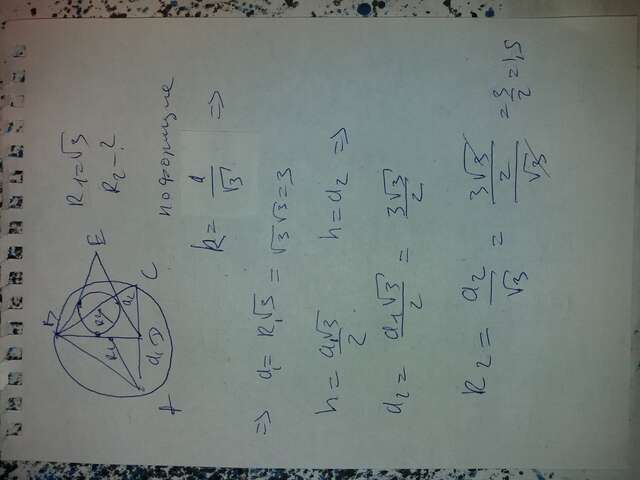 B
E
R₁
R₂
a₂
A
a₁
D
C
R₁ = √3
R₂ - ?
по формуле
R = a/√3 =>
=> a₁ = R₁√3 = √3 √3 = 3
h = a₁√3/2   h = a₂ =>
a₂ = a₁√3/2 = 3√3/2
R₂ = a₂/√3 = (3√3/2)/√3 = 3/2 = 1,5